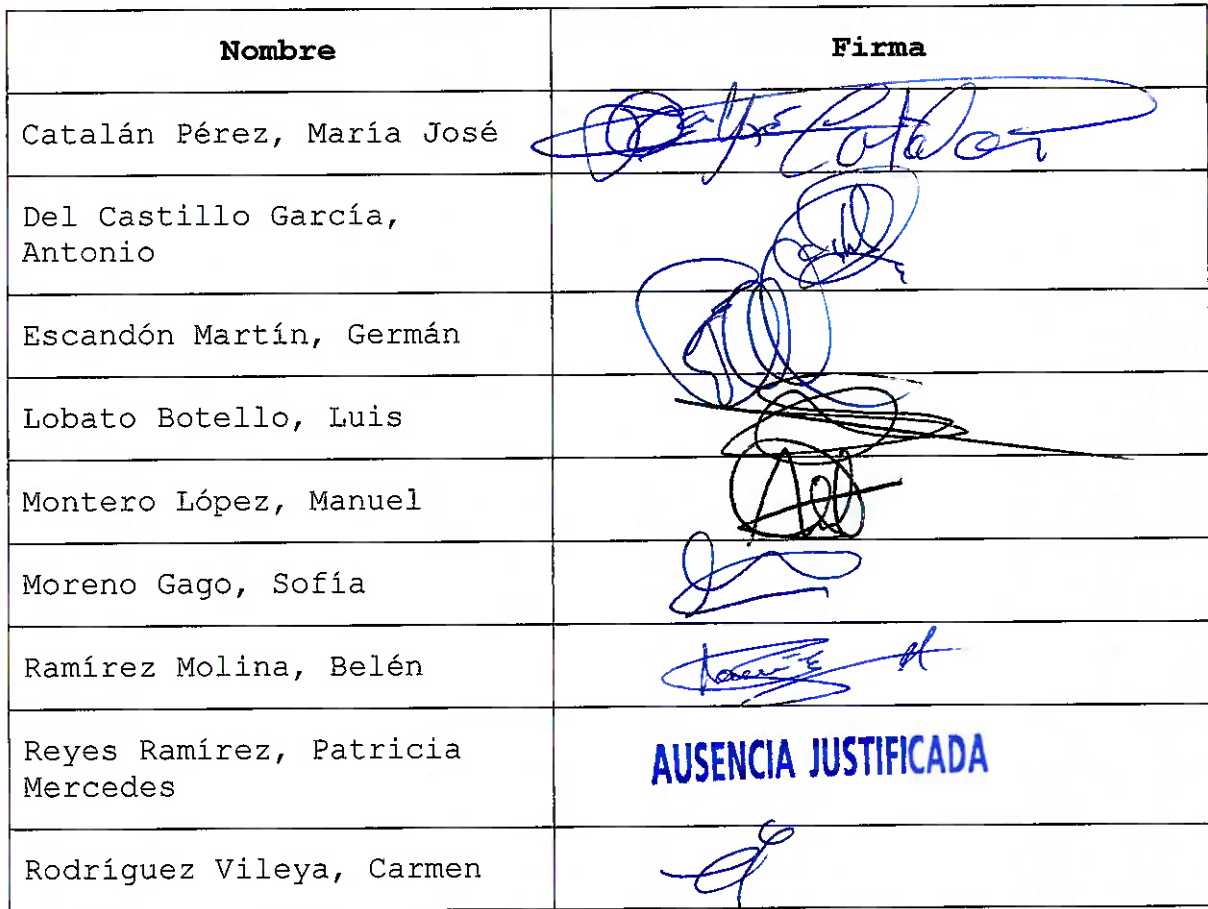 Nombre Firma
Catalán Pérez, María José
Del Castillo García,
Antonio
Escandón Martín, Germán
Lobato Botello, Luis
Montero López, Manuel
Moreno Gago, Sofía
Ramírez Molina, Belén
Reyes Ramírez, Patricia
Mercedes
AUSENCIA JUSTIFICADA
Rodríguez Vileya, Carmen